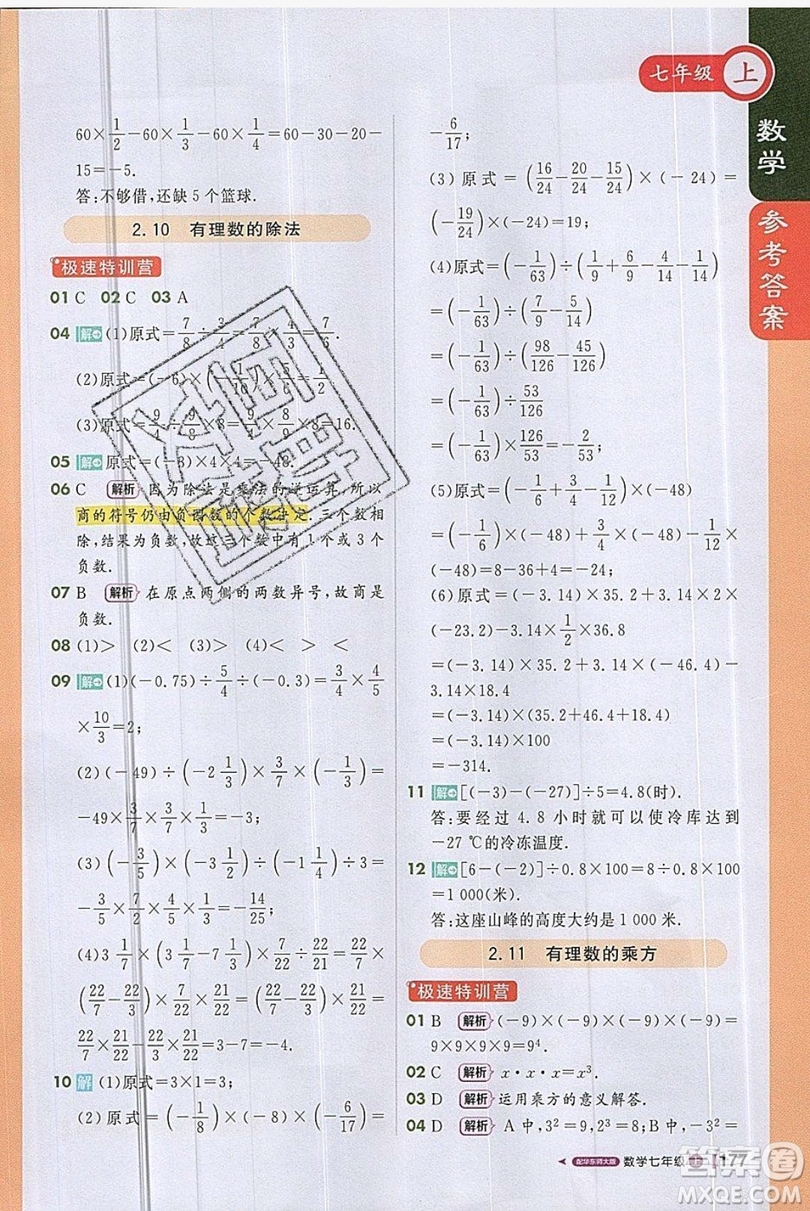 七年级 上
数学
参考答案
60×1/2-60×1/3-60×1/4=60-30-20-
15=-5.
答:不够借,还缺 5 个篮球.
2.10 有理数的除法
极速特训营
01 C 02 C 03 A
04 解 (1)原式=7/8÷3/4=7/8×4/3=7/6.
(2)原式=(-6)×
(3)原式=9/4÷9/8×8=9/4×8/9×8=16.
05 解 原式=(-3)×4×4=-48.
06 C 解析 因为除法是乘法的逆运算,所以
商的符号仍由负因数的个数决定.三个数相
除,结果为负数,故这三个数中有 1 个或 3 个
负数.
07 B 解析 在原点两侧的两数异号,故商是
负数.
08 (1)> (2)< (3)> < > <
09 解 (1)(-0.75)÷5/4÷(-0.3)=3/4×4/5
×10/3=2;
(2)(-49)÷(-2 1/3)×3/7×(-1/3)=
-49×3/7×3/7×1/3=-3;
(3)(-3/5)×(-3 1/2)÷(-1 1/4)÷3=
-3/5×7/2×4/5×1/3=-14/25;
(4)3 1/7×(3 1/7-7 1/3)×7/22÷22/21=22/7×
(22/7-22/3)×7/22×21/22=(22/7-22/3)×21/22=
22/7×21/22-22/3×21/22=3-7=-4.
10 解 (1)原式=3×1=3;
(2)原式=(-1/8)×(-8)×(-6/17)=
-6/17;
(3)原式=(16/24-20/24-15/24)×(-24)=
(-19/24)×(-24)=19;
(4)原式=(-1/63)÷(7/9-5/14)
=(-1/63)÷(7/9-5/14)
=(-1/63)÷(98/126-45/126)
=(-1/63)÷53/126
=(-1/63)×126/53=-2/53;
(5)原式=(-1/6+3/4-1/12)×(-48)
=(-1/6)×(-48)+3/4×(-48)-1/12×
(-48)=8-36+4=-24;
(6)原式=(-3.14)×35.2+6.28×
(-23.2)-3.14×1/2×36.8
=(-3.14)×35.2+(-3.14)×46.4+(-3.14)×18.4
=(-3.14)×(35.2+46.4+18.4)
=(-3.14)×100
=-314.
11 解 [(-3)-(-27)]÷5=4.8(时).
答:要经过 4.8 小时就可以使冷库达到
-27 ℃的冷冻温度.
12 解 [6-(-2)]÷0.8×100=8÷0.8×100=
1 000(米).
答:这座山峰的高度大约是 1 000 米.
2.11 有理数的乘方
极速特训营
01 B 解析 (-9)×(-9)×(-9)×(-9)=
9×9×9×9=9⁴.
02 C 解析 x·x·x=x³.
03 D 解析 运用乘方的意义解答.
04 D 解析 A中,3²=9,2³=8;B中,-3²=
配华东师大版 数学七年级 上 177
答案圈
MXQE.COM